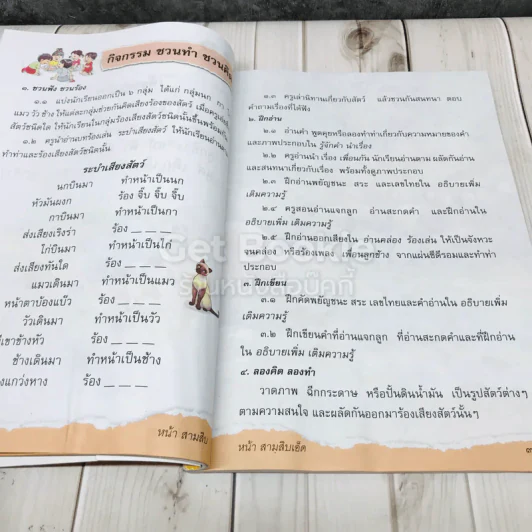 กิจกรรม ชวนทำ ชวนคิด
๑. ชวนฟัง ชวนร้อง
๑.๑ แบ่งนักเรียนออกเป็น ๒ กลุ่ม ได้แก่ กลุ่มนก กา
แมว วัว ช้าง ให้แต่ละกลุ่มช่วยกันคิดเสียงร้องของสัตว์ เมื่อครู
สัตว์ชนิดใด ให้นักเรียนในกลุ่มร้องเสียงสัตว์ชนิดนั้นขึ้นพร้อมกัน
๑.๒ ครูนำอ่านบทร้องเล่น ระบำเสียงสัตว์ ให้นักเรียนอ่าน
ทำท่าและร้องเสียงสัตว์ชนิดนั้น
ระบำเสียงสัตว์
นกบินมา ทำหน้าเป็นนก
หัวมันผงก ร้อง จิ๊บ จิ๊บ จิ๊บ
กาบินมา ทำหน้าเป็นกา
ส่งเสียงเริงร่า ร้อง _ _ _
ไก่บินมา ทำหน้าเป็นไก่
ส่งเสียงทันใด ร้อง _ _ _
แมวเดินมา ทำหน้าเป็นแมว
หน้าตาบ้องแบ๊ว ร้อง _ _ _
วัวเดินมา ทำหน้าเป็นวัว
เขาข้างหัว ร้อง _ _ _
ช้างเดินมา ทำหน้าเป็นช้าง
แกว่งหาง ร้อง _ _ _
หน้า สามสิบ
๑.๓ ครูเล่านิทานเกี่ยวกับสัตว์ แล้วชวนกันสนทนา ตอบ
คำถามเรื่องที่ได้ฟัง
๒. ฝึกอ่าน
๒.๑ อ่านคำ พูดคุยหรือลองทำท่าเกี่ยวกับความหมายของคำ
และภาพประกอบใน รู้จักคำ นำเรื่อง
๒.๒ ครูอ่านนำ เรื่อง เพื่อนกัน นักเรียนอ่านตาม ผลัดกันอ่าน
และสนทนาเกี่ยวกับเรื่อง พร้อมทั้งดูภาพประกอบ
๒.๓ ฝึกอ่านพยัญชนะ สระ และเลขไทยใน อธิบายเพิ่ม
เติมความรู้
๒.๔ ครูสอนอ่านแจกลูก อ่านสะกดคำ และฝึกอ่านใน
อธิบายเพิ่ม เติมความรู้
๒.๕ ฝึกอ่านออกเสียงใน อ่านคล่อง ร้องเล่น ให้เป็นจังหวะ
จนคล่อง หรือร้องเพลง เพื่อนลูกช้าง จากแผ่นซีดีรอมและทำท่า
ประกอบ
๓. ฝึกเขียน
๓.๑ ฝึกคัดพยัญชนะ สระ เลขไทยและคำอ่าน ใน อธิบายเพิ่ม
เติมความรู้
๓.๒ ฝึกเขียนคำที่อ่านแจกลูก ที่อ่านสะกดคำและที่ฝึกอ่าน
ใน อธิบายเพิ่ม เติมความรู้
๔. ลองคิด ลองทำ
วาดภาพ ฉีกกระดาษ หรือปั้นดินน้ำมัน เป็นรูปสัตว์ต่างๆ
ตามความสนใจ และผลัดกันออกมาร้องเสียงสัตว์นั้นๆ
หน้า สามสิบเอ็ด
Get Bookie
ร้านหนังสือบุ๊คกี้